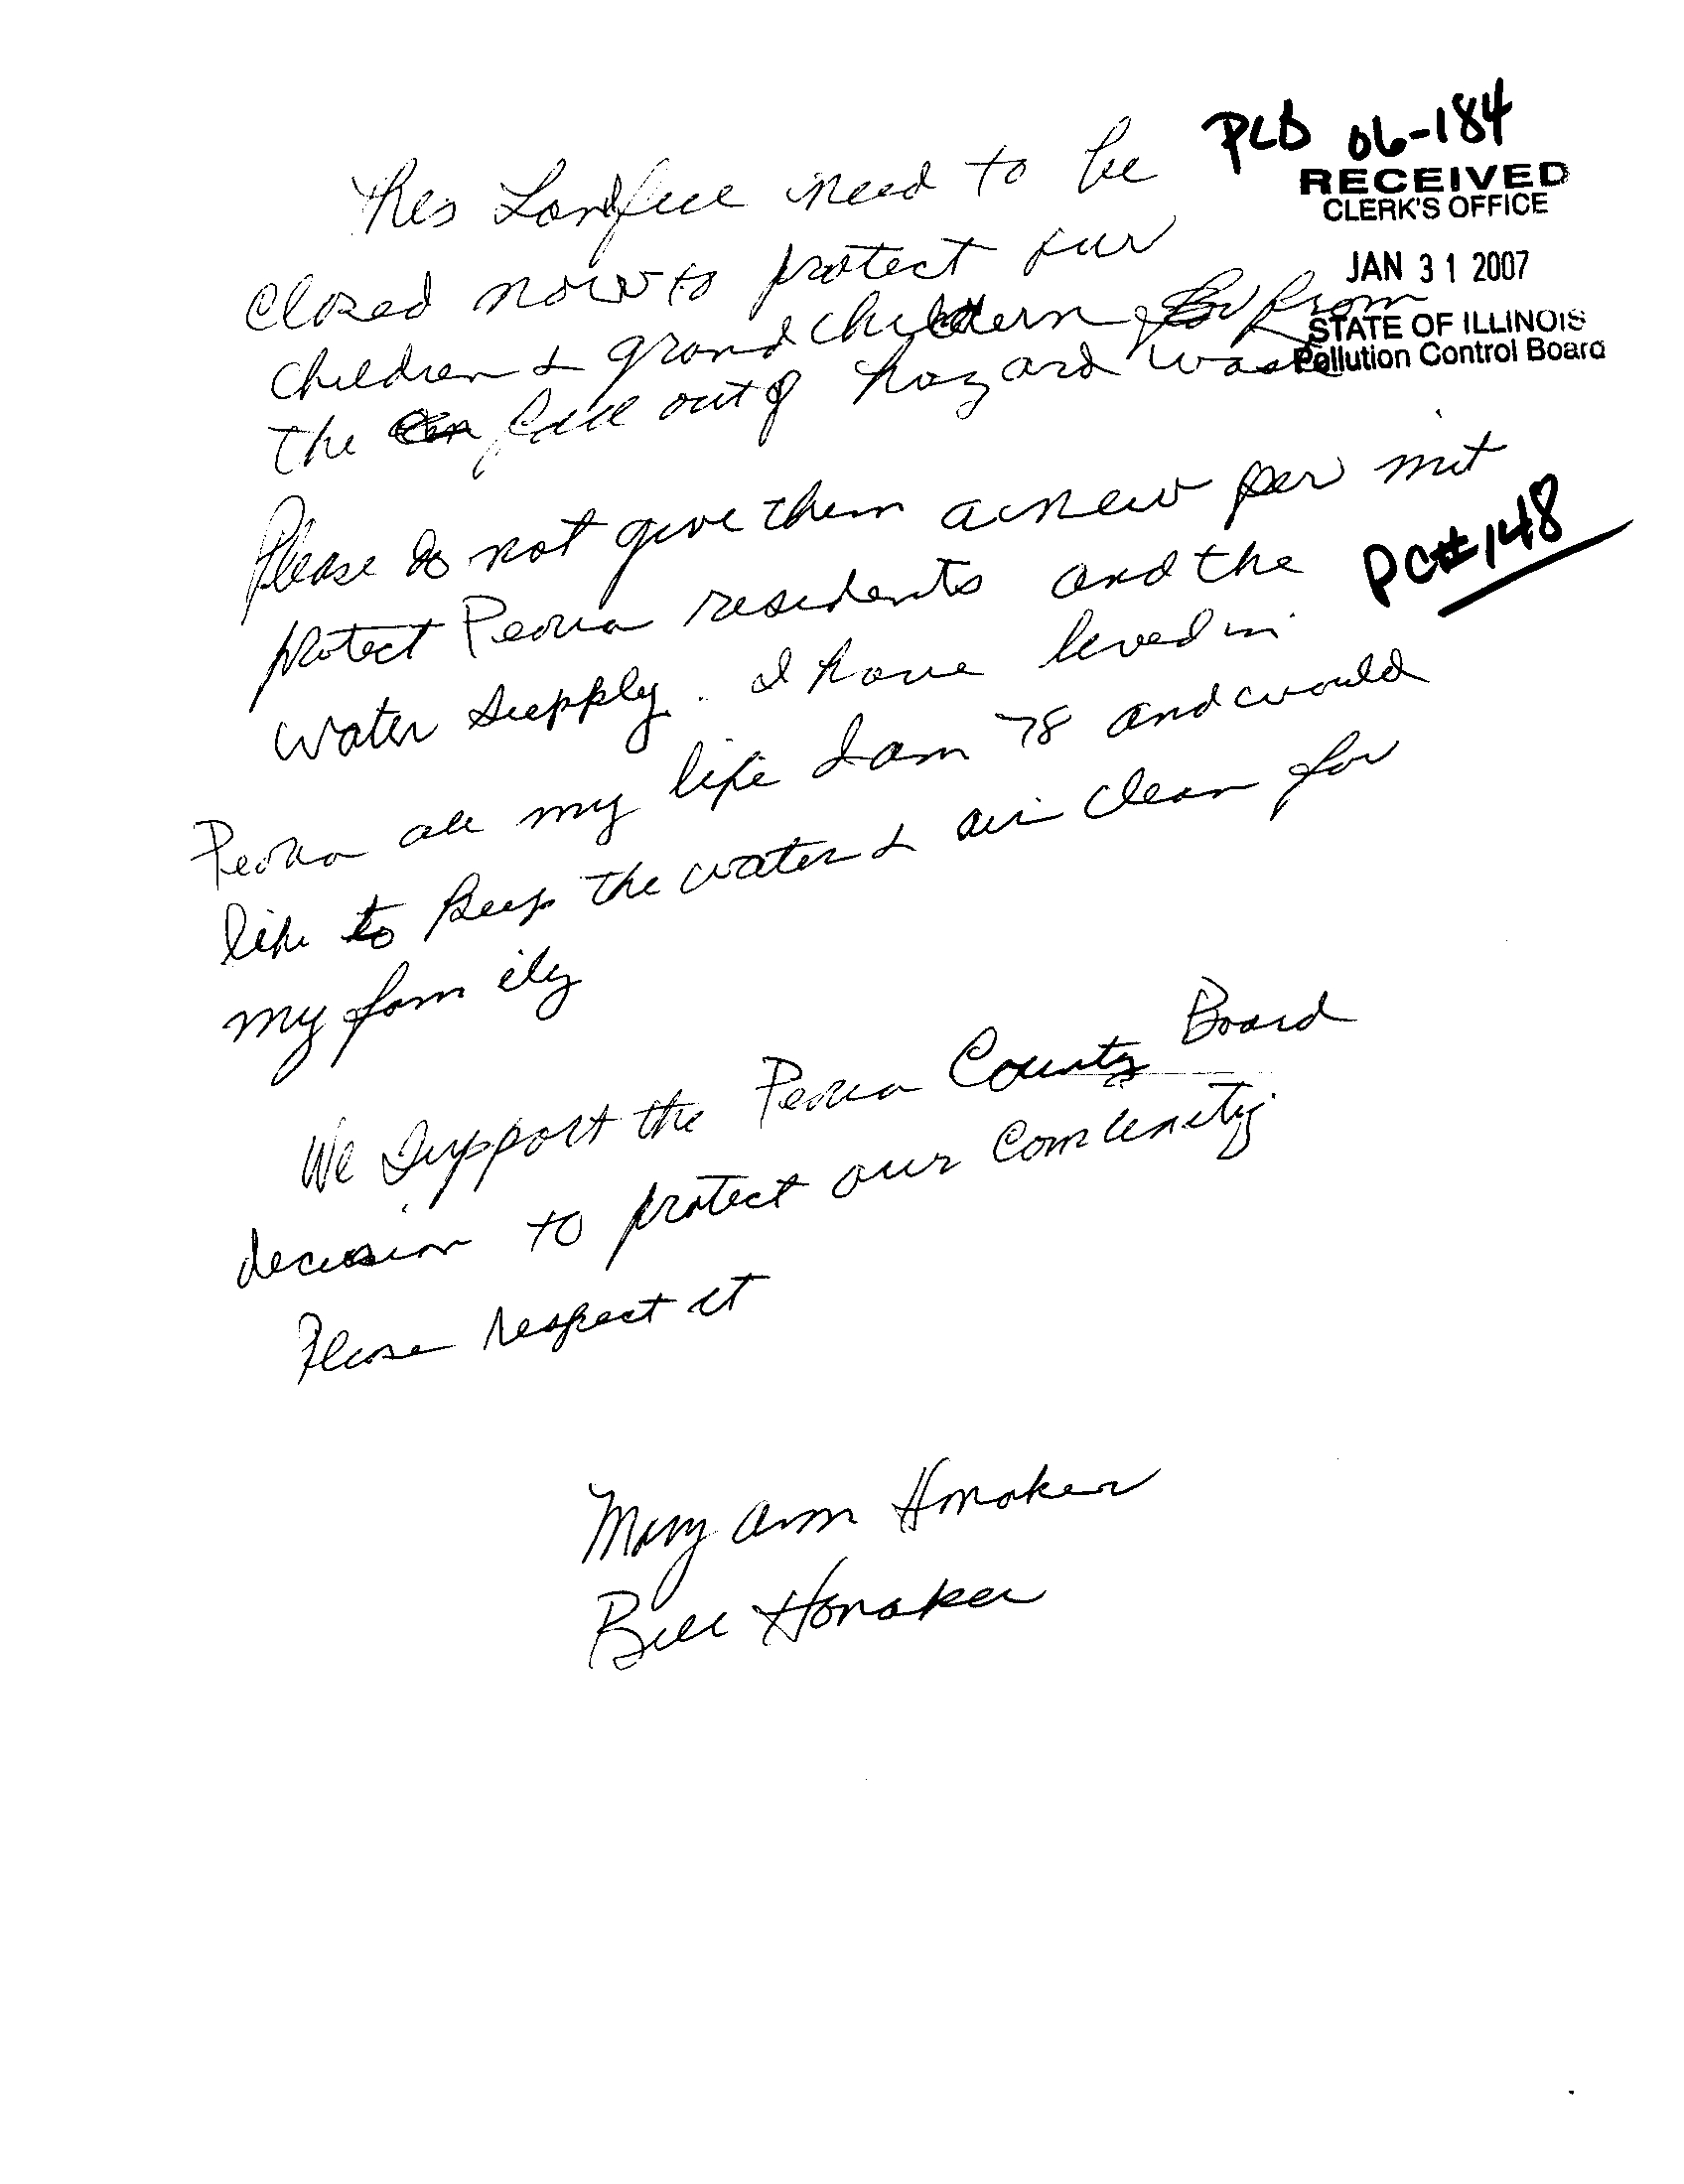 PCB 06-184
RECEIVED
CLERK'S OFFICE
JAN 31 2007
STATE OF ILLINOIS
Pollution Control Board
This Landfill need to be
closed now to protect our
children & grandchildern from
the fall out of hazard waste
Please do not give them a new per mit
PC#148
protect Peoria residents and the
water supply. I have lived in
Peoria all my life I am 78 and would
like to keep the water & air clean for
my family
We Support the Peoria County Board
decision to protect our Community
Please respect it
Mary Ann Honaker
Bill Honaker